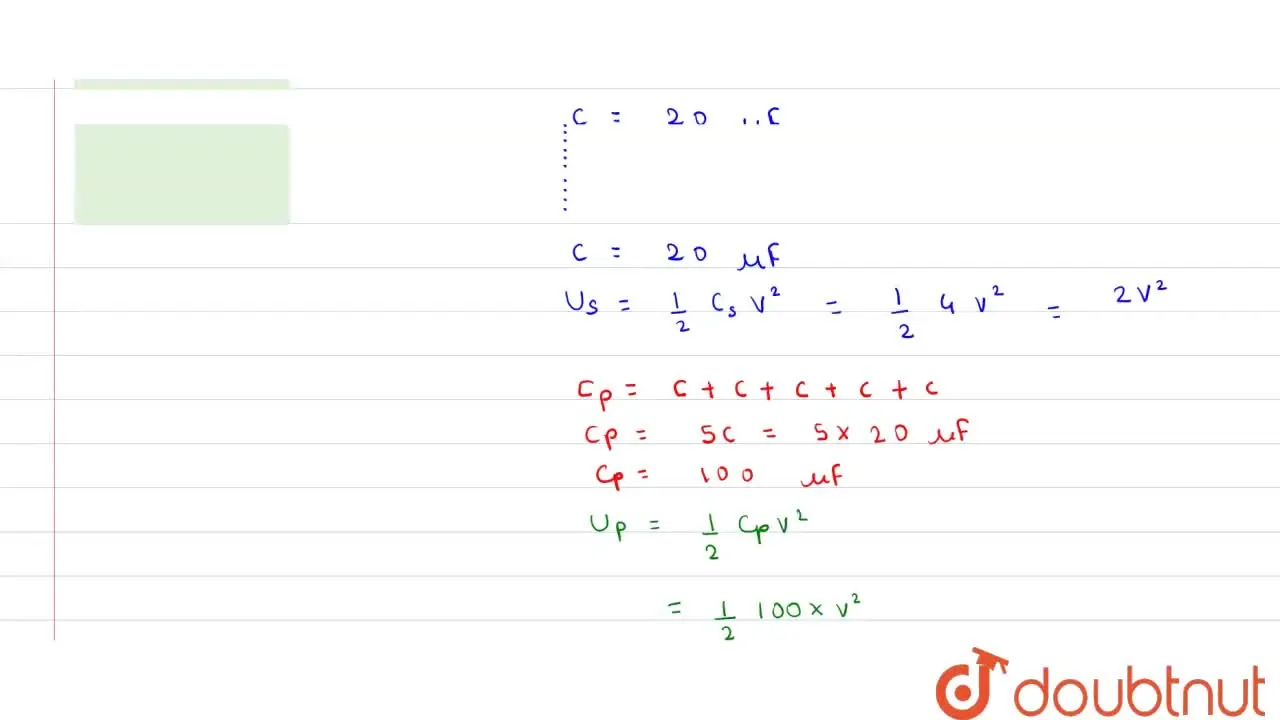 C = 20
C = 20 μF
Us = 1/2 Cs V² = 1/2 4 V² = 2V²
Cp = C + C + C + C + C
Cp = 5C = 5 × 20 μF
Cp = 100 μF
Up = 1/2 Cp V²
= 1/2 100 × V²
doubtnut